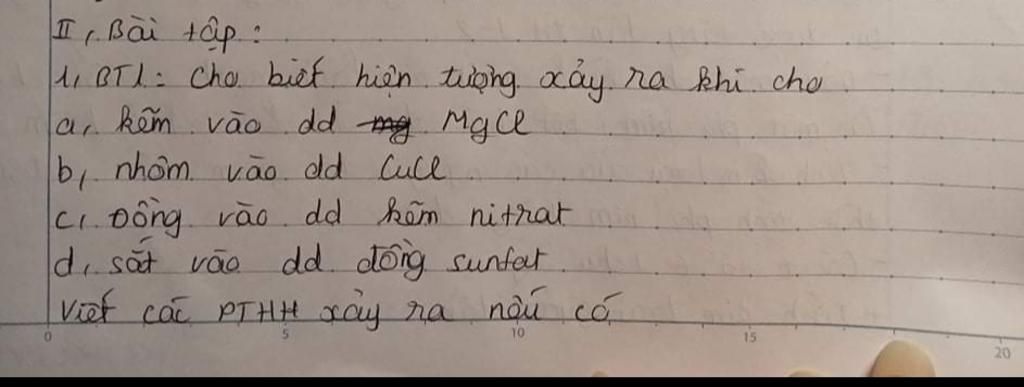 II, Bài tập:
1, BT1: Cho biết hiện tượng xảy ra khi cho
a, kẽm vào dd mg MgCl
b, nhôm vào dd CuCl
c, Đồng vào dd kẽm nitrat
d, sắt vào dd đồng sunfat
Viết các PTHH xảy ra nếu có
0 5 10 15 20